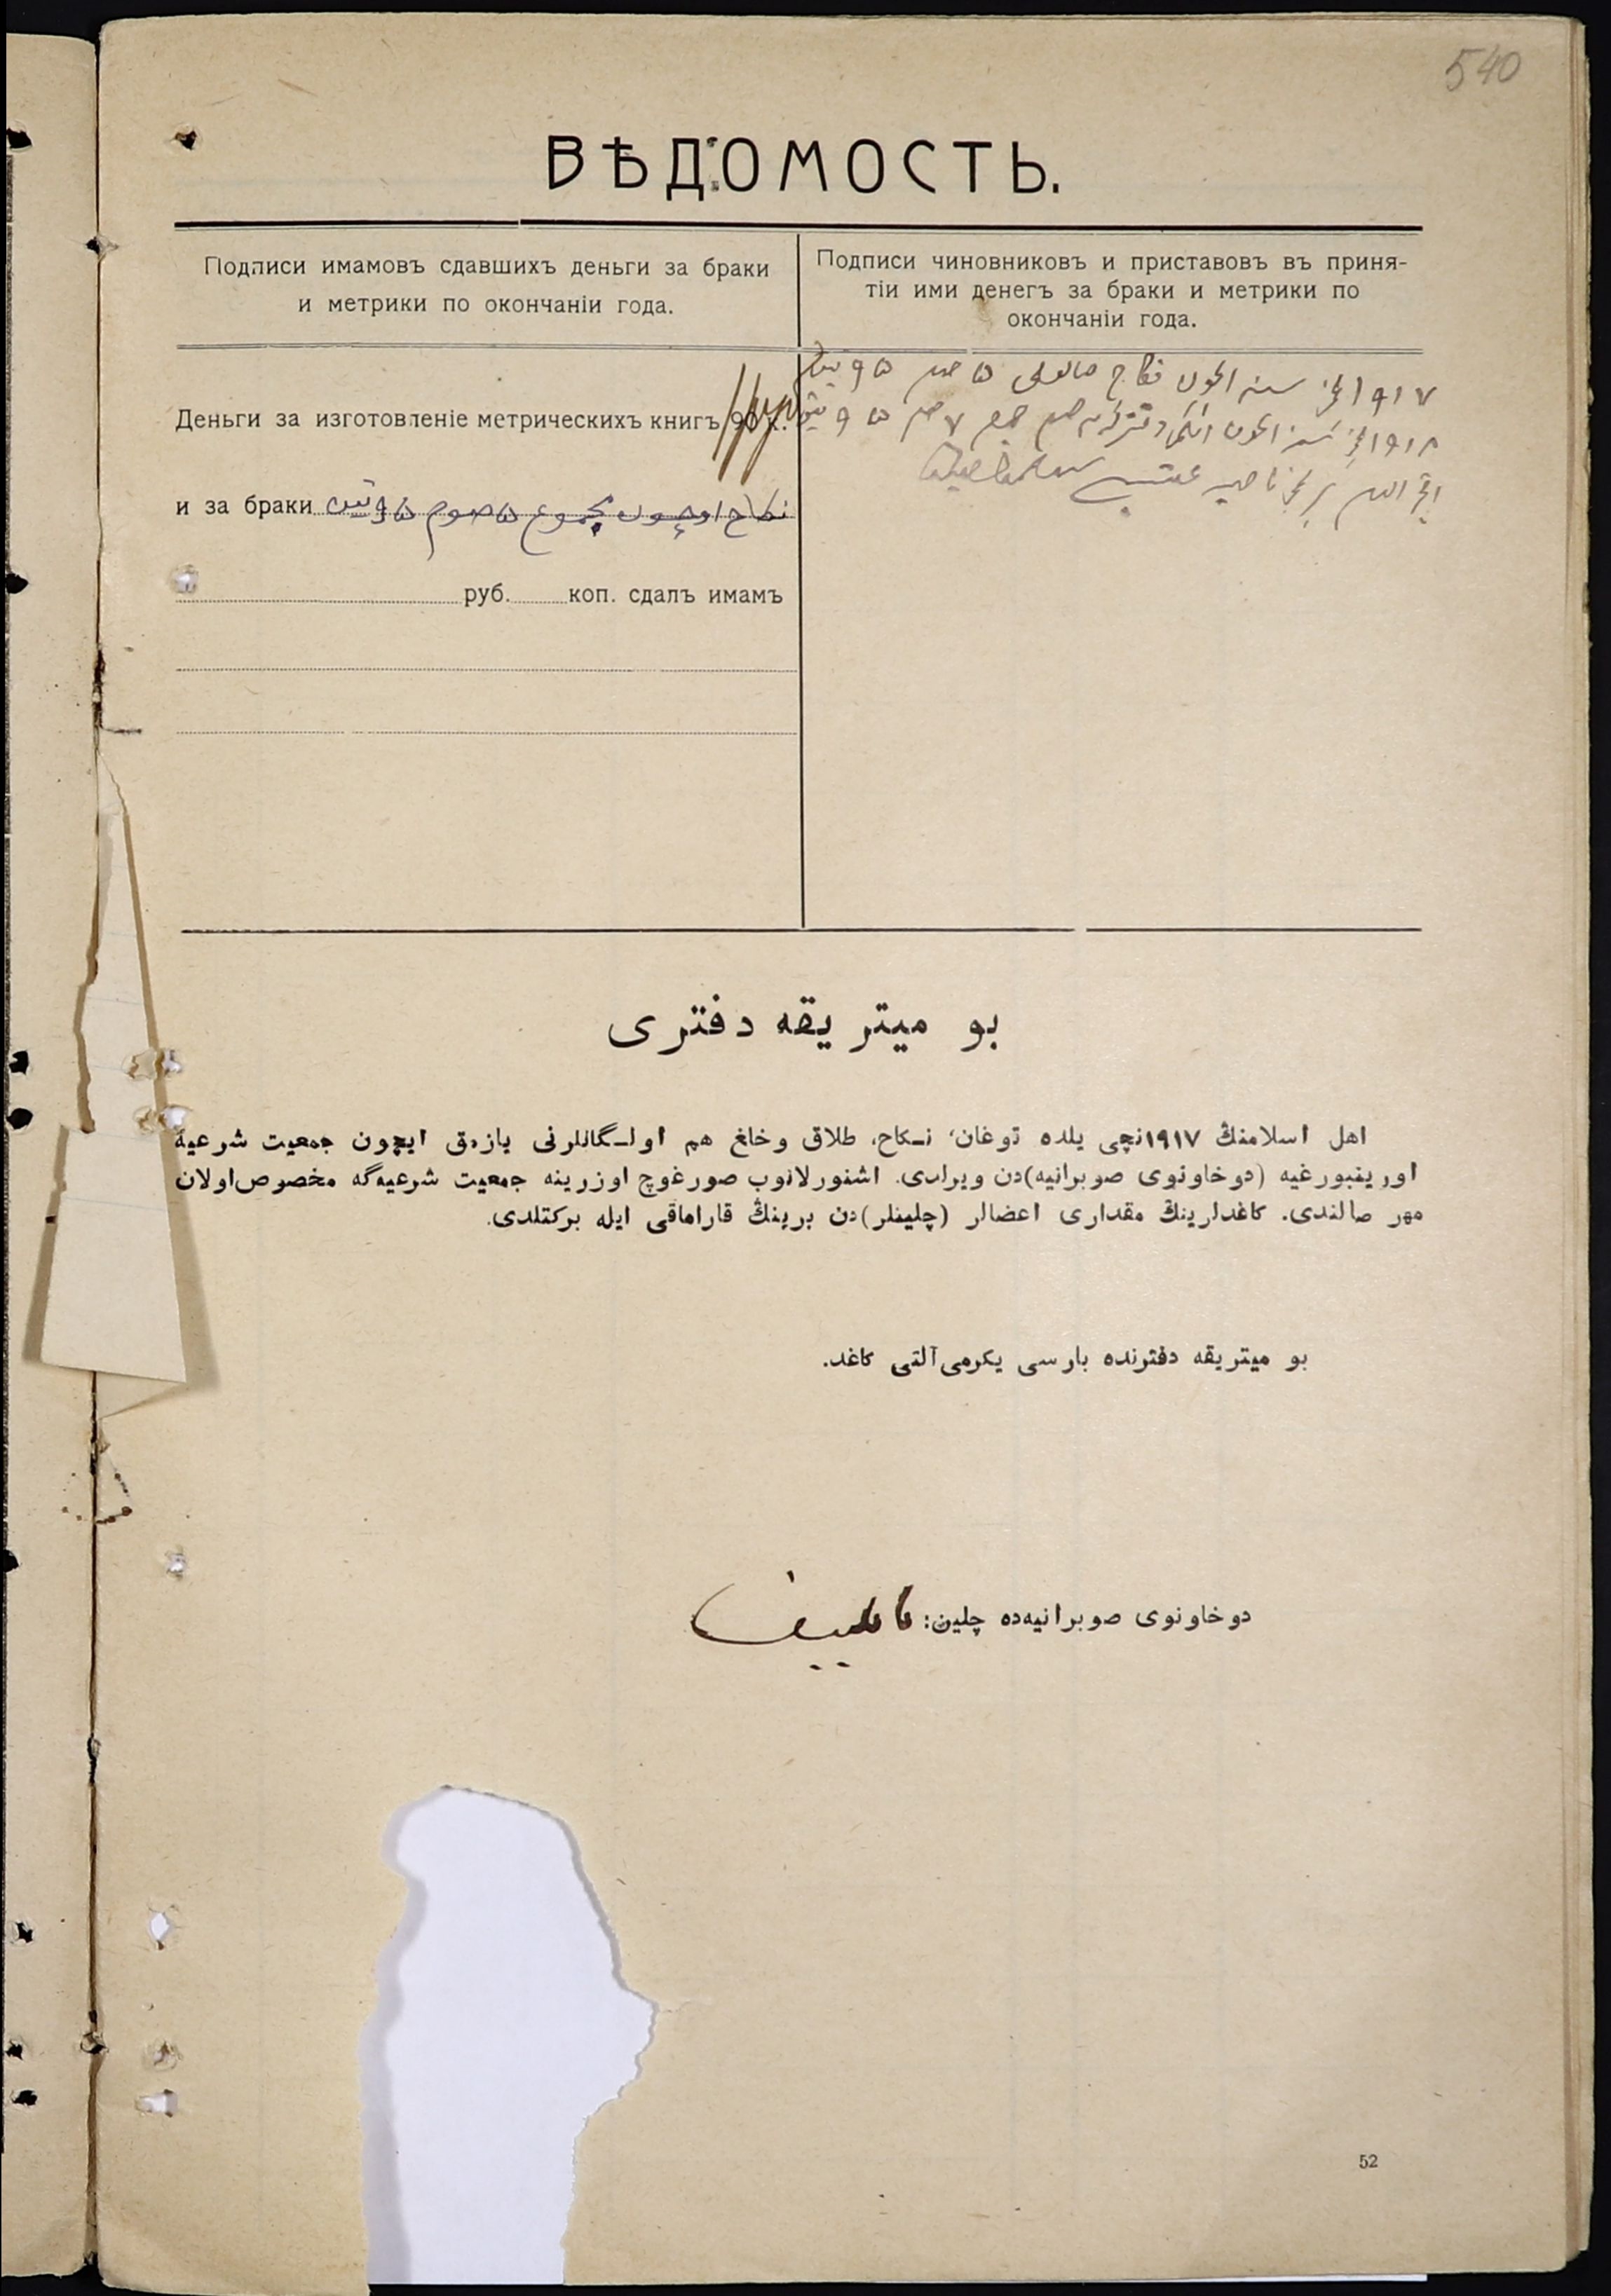 540
ВѢДОМОСТЬ.
Подписи имамовъ сдавшихъ деньги за браки
и метрики по окончаніи года.
Подписи чиновниковъ и приставовъ въ приня-
тіи ими денегъ за браки и метрики по
окончаніи года.
Деньги за изготовленіе метрическихъ книгъ 90 к.
и за браки نكاح اوچون مجموع ۵ صوم
руб. коп. сдалъ имамъ
۱۹۱۷ نچی سنه اچون نكاح ۵
۱۹۱۸ نچی سنه اچون دفتر
بو ميتريقه دفترى
اهل اسلامنڭ ۱۹۱۷نچى يلده توغان، نـكاح، طلاق وخلع هم اولـگانلرنى يازمق ايچون جمعيت شرعيهٔ
اورينبورغيه (دوخاونوى صوبرانيه)دن ويرلدى. اشنورلانوب صورغوچ اوزرينه جمعيت شرعيه‌گه مخصوص اولان
مهر صالندى. كاغدلرينڭ مقدارى اعضالر (چلينلر)دن برينڭ قاراماقى ايله بركتلدى.
بو ميتريقه دفترنده بارسى يكرمى آلتى كاغد.
دوخاونوى صوبرانيه‌ده چلين:
52